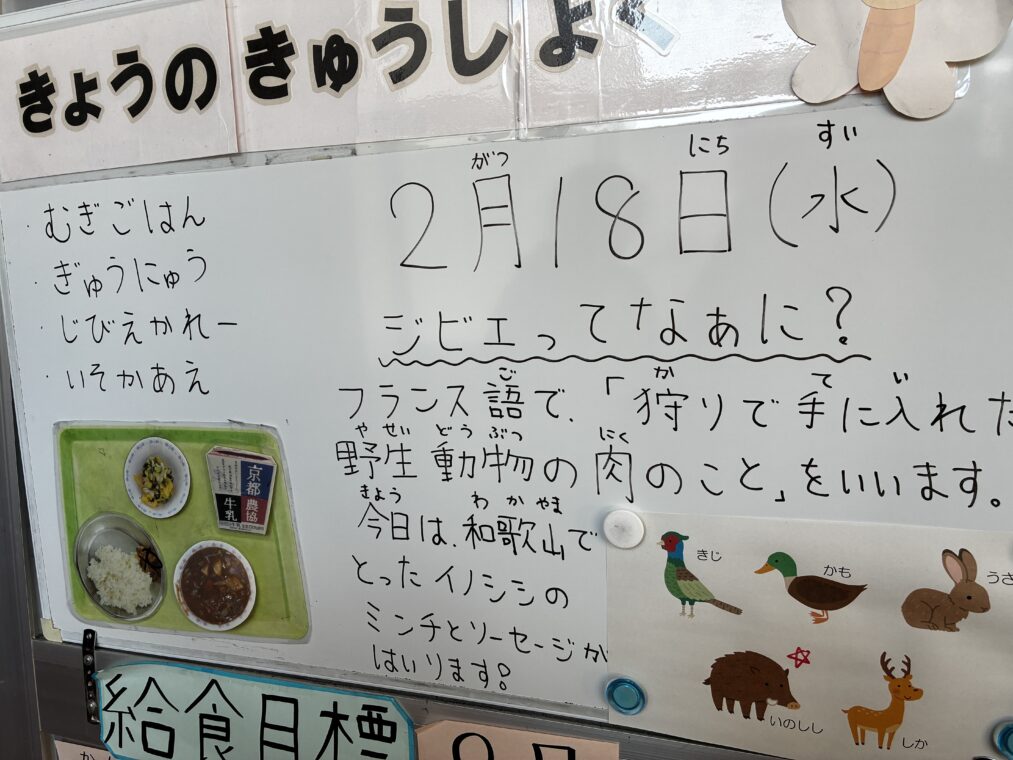 きょうの きゅうしょく
・むぎごはん
・ぎゅうにゅう
・じびえかれー
・いそかあえ
がつ にち すい
2月18日(水)
ジビエってなぁに?
ご か て い
フランス語で、「狩りで手に入れた
や せい どう ぶつ にく
野生動物の肉のこと」をいいます。
きょう わ か やま
今日は、和歌山で
とったイノシシの
ミンチとソーセージが
はいります。
京都農協
牛乳
きじ
かも
うさ
いのしし
しか
給食目標